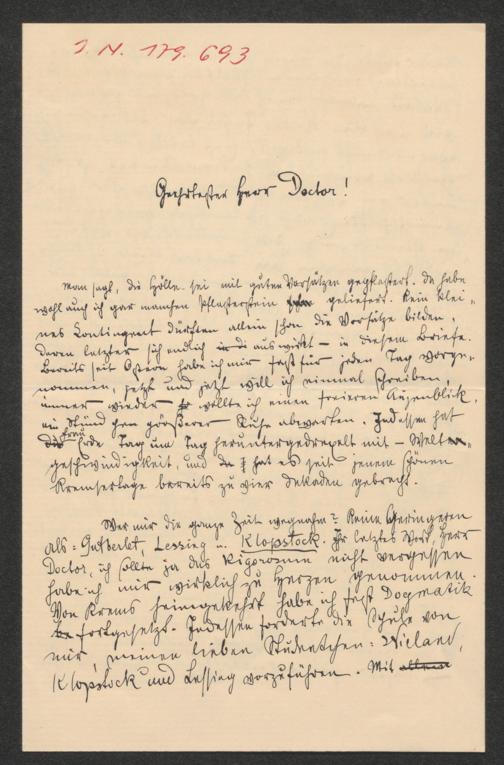 I. N. 179.693
Geehrtester Herr Doctor!
Man sagt, die Hölle sei mit guten Vorsätzen gepflastert. Da habe
wohl auch ich gar manchen Pflasterstein geliefert. Kein klei-
nes Contingent dürften allein schon die Vorsätze bilden,
deren letzter sich endlich auswirkt – in diesem Briefe.
Bereits seit Ostern habe ich mir fast für jeden Tag vorge-
nommen, jetzt und jetzt will ich einmal schreiben,
immer wieder wollte ich einen freieren Augenblick,
ein Stündchen größerer Ruhe abwarten. Indessen hat
Erde Tag um Tag heruntergedrepelt mit – Welten-
geschwindigkeit, und hat es seit jenem schönen
Kremsertage bereits zu vier Dekaden gebracht.
Wer mir die ganze Zeit wegnahm? Keine Geringeren
als: Gutberlet, Lessing u. Klopstock. Ihr letztes Wort, Herr
Doctor, ich sollte ja das Rigorosum nicht vergessen
habe ich mir wirklich zu Herzen genommen.
Von Krems heimgekehrt habe ich fest Dogmatik
fortgesetzt. Indessen forderte die Schule von
mir, meinen lieben Studentchen: Wieland,
Klopstock und Lessing vorzuführen. Mit